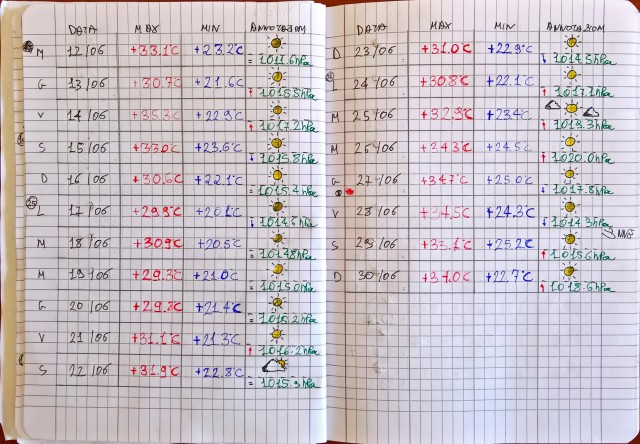 DATA MAX MIN ANNOTAZIONI
M 12/06 +33.1°C +23.2°C
= 1011.6hPa
G 13/06 +30.7°C +21.6°C
↑ 1015.5hPa
V 14/06 +35.3°C +22.9°C
↑ 1017.2hPa
S 15/06 +33.0°C +23.6°C
↓ 1015.8hPa
D 16/06 +30.6°C +22.1°C
= 1015.4hPa
L 17/06 +29.9°C +20.1°C
↓ 1014.6hPa
M 18/06 +30.9°C +20.5°C
= 1014.8hPa
M 19/06 +29.3°C +21.0°C
= 1015.0hPa
G 20/06 +29.8°C +21.4°C
= 1015.2hPa
V 21/06 +31.1°C +21.3°C
↑ 1016.2hPa
S 22/06 +31.9°C +22.8°C
= 1015.9hPa
DATA MAX MIN ANNOTAZIONI
D 23/06 +31.0°C +22.9°C
↓ 1014.5hPa
L 24/06 +30.8°C +22.1°C
↑ 1017.1hPa
M 25/06 +32.9°C +23.4°C
↑
M 26/06 +34.3°C +24.5°C
↑ 1020.0hPa
G 27/06 +34.7°C +25.0°C
↓ 1017.8hPa
V 28/06 +34.5°C +24.3°C
↓ 1014.3hPa
S 29/06 +33.1°C +25.2°C
↑ 1015.6hPa
D 30/06 +31.0°C +22.7°C
↑ 1018.6hPa